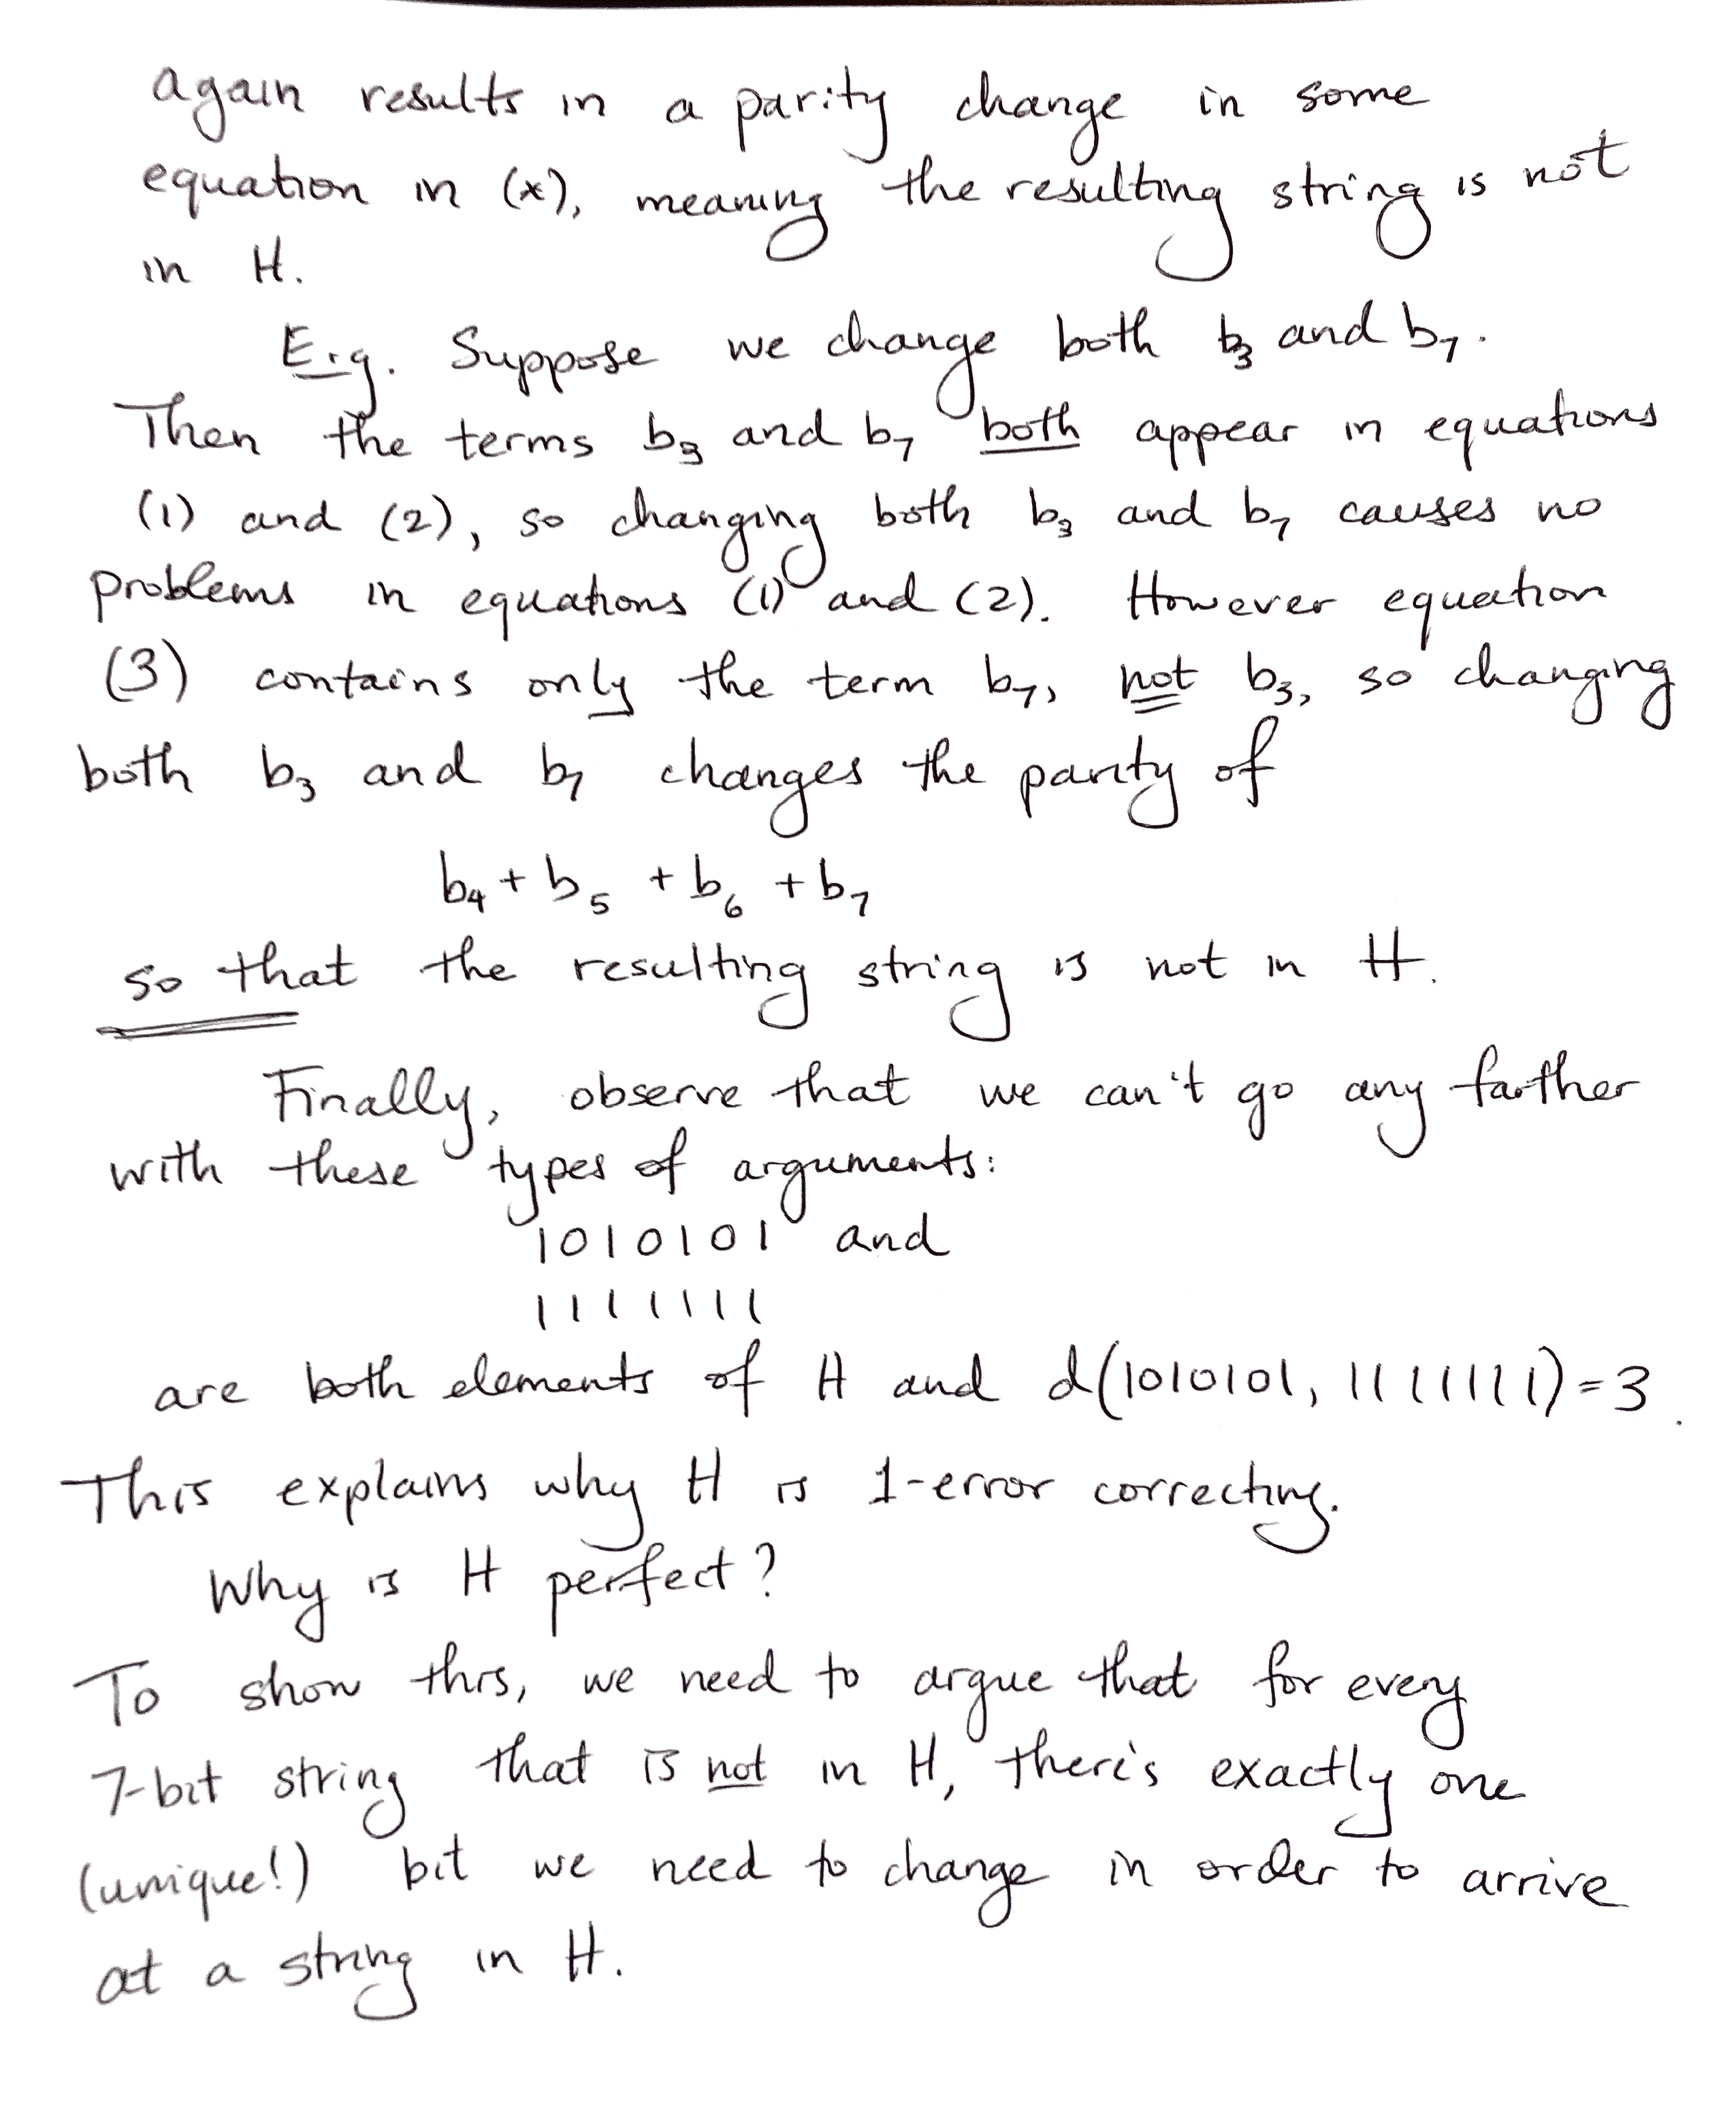 again results in a parity change in some
equation in (*), meaning the resulting string is not
in H.
E.g. Suppose we change both b₃ and b₇.
Then the terms b₃ and b₇ both appear in equations
(1) and (2), so changing both b₃ and b₇ causes no
problems in equations (1) and (2). However equation
(3) contains only the term b₇, not b₃, so changing
both b₃ and b₇ changes the parity of
b₄ + b₅ + b₆ + b₇
so that the resulting string is not in H.
Finally, observe that we can't go any farther
with these types of arguments:
1010101 and
1111111
are both elements of H and d(1010101, 1111111)=3.
This explains why H is 1-error correcting.
Why is H perfect?
To show this, we need to argue that for every
7-bit string that is not in H, there's exactly one
(unique!) bit we need to change in order to arrive
at a string in H.